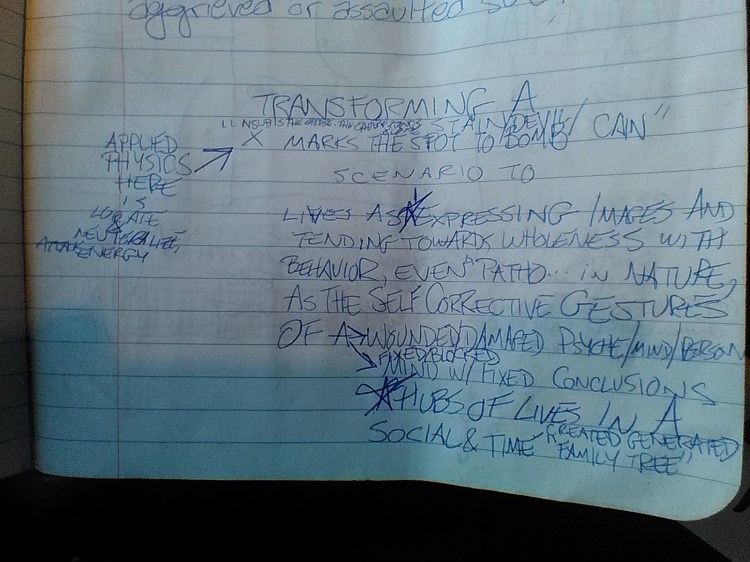 aggrieved or assaulted
TRANSFORMING A
STAIN/DEVIL/ CAIN"
X MARKS THE SPOT TO BOMB
SCENARIO TO
APPLIED
PHYSICS
HERE
IS
ENERGY
LIVES AS EXPRESSING IMAGES AND
TENDING TOWARDS WHOLENESS WITH
BEHAVIOR, EVEN "PATHO... IN NATURE,
AS THE SELF CORRECTIVE GESTURES
OF A WOUNDED/DAMAGED PSYCHE/MIND/PERSON
FIXED/BLOCKED
MIND W/ FIXED CONCLUSIONS
HUBS OF LIVES IN A
SOCIAL & TIME CREATED GENERATED
FAMILY TREE"